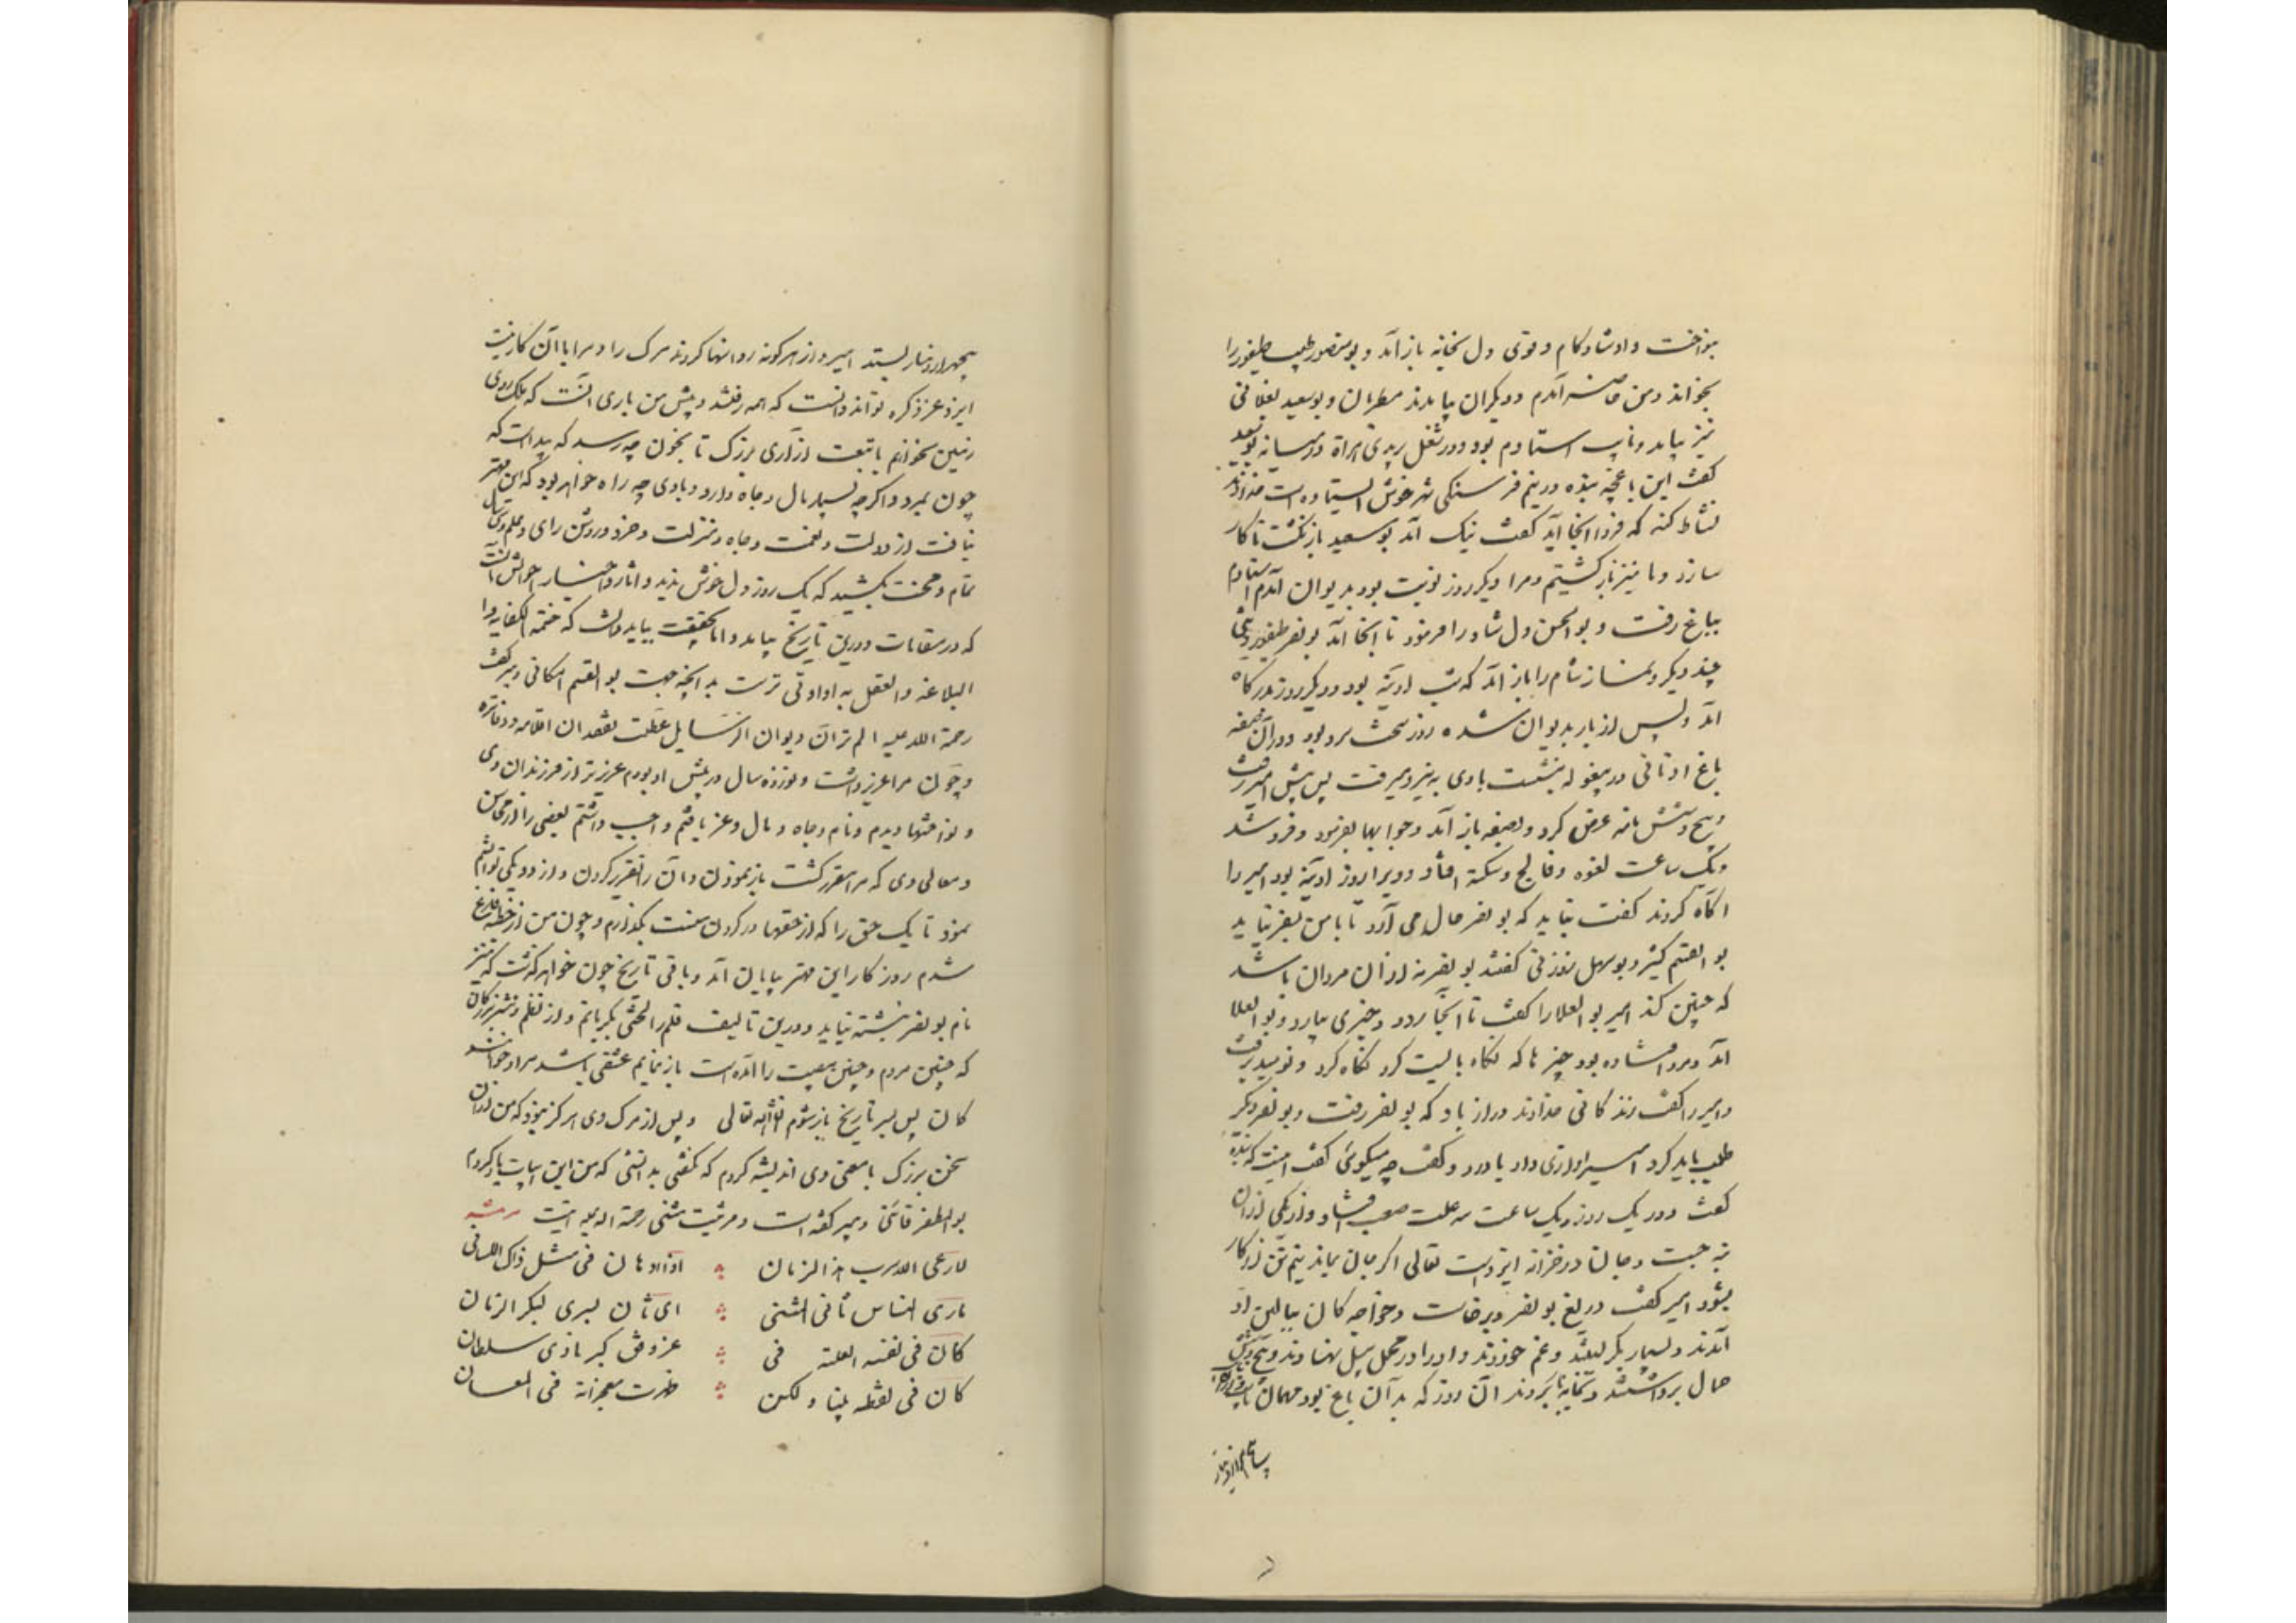 بنواخت و او شادکام و قوی دل بخانه باز آمد و بومنصور طبیب طیفور را
بخواند و من حاضر آمدم و دیگران بیامدند مطربان و بوسعید بغلانی
نیز بیامد و نایب استادم بود در شغل بریدی هراة در میانه بوسعید
گفت این باغچه بنده در نیم فرسنگی شهر خوش ایستاده است خداوند
نشاط کند که فردا انجا آید گفت نیک آمد بوسعید بازگشت تا کار
سازد و ما نیز بازگشتیم و مرا دیگر روز نوبت بود بدیوان آمدم استادم
بباغ رفت و بوالحسن دلشاد را فرمود تا انجا آمد بونصر طیفور و تنی
چند دیگر و نماز شام را باز آمد که شب ادینه بود و دیگر روز بدرگاه
آمد و پس از بار بدیوان شده روز سخت سرد بود و در آن صفه
باغ در بیغوله بنشست بادی به نیرو میرفت پس پیش امیر رفت
و پنج و شش نامه عرض کرد و بصفه باز آمد و جوابها بفرمود و فرو شد
و یک ساعت لقوه و فالج و سکته افتاد و ویرا روز ادینه بود امیر را
اکاه کردند گفت نباید که بونصر حال می آرد تا با من بسفر نیاید
بوالقسم کثیر و بوسهل زوزنی گفتند بونصر نه از آن مردان باشد
که چنین کند امیر بوالعلا را گفت تا آنجا رود و خبری بیارد و بوالعلا
آمد و مرد افتاده بود چیزها که نگاه بایست کرد نگاه کرد و نومید برفت
و امیر را گفت زندگانی خداوند دراز باد که بونصر رفت و بونصر دیگر
طلب باید کرد امیر آوازی داد با درد و گفت چه میگوئی گفت اینست که بنده
گفت و در یک روز و یک ساعت سه علت صعب افتاد و از یکی از آن
نه جست و جان در خزانه ایزدست تعالی اگر جان بماند نیم تن از کار
بشود امیر گفت دریغ بونصر و برخاست و خواجه کان ببالین او
آمدند و بسیار بگریستند و غم خوردند و او را در محمل پیل نهادند و پنج و شش
حمال برداشتند و بخانه باز بردند آن روز که بدان باغ بود مهمان
چهرار دینار بستد امیر و از هرگونه روایتها کردند مرگ را و مرا با آن کار نیست
ایزد عز ذکره تواند دانست که همه رفتند و پیش من باری آنست که ملک روی
زمین نخواهم با تبعت آزاری بزرگ تا بخون چه رسد که پیداست که
چون بمیرد و اگر چه بسیار مال و جاه دارد با وی چه را ه خواهد بود که این مهتر
نیافت از دولت و نعمت و جاه و منزلت و خرد و روشن رای و علم و سی سال
تمام و محنت بکشید که یک روز دل خوش ندید و آثار و اخبار و احوالش آنست
که در مقامات و در این تاریخ بیامد و اما بحقیقت بباید دانست که ختمه الکفایه و
البلاغه والعقل به او اولی ترست بد انچه جهت بو القسم اسکافی دبیر گفت
رحمة الله علیه الم تر ان دیوان الرسایل عطلت بفقدان اقلامه و دفاتره
و چون مرا عزیز داشت و نوزده سال در پیش او بودم عزیز تر از فرزندان وی
و نواختها دیدم و نام و جاه و مال و عز یافتم واجب داشتم بعضی را از محاسن
و معالی وی که مرا مقرر گشت باز نمودن و آن را تقریر کردن و از ده یکی نتوانستم
نمود تا یک حق را که از حقها در گردن منست بگذارم و چون من از خطبه فارغ
شدم روزگار این مهتر بپایان آمد و باقی تاریخ چون خواهد گذشت که نیز
نام بونصر نبشته نیاید و درین تالیف قلم را لختی بگریانم و از نظم و نثر بزرگان
که چنین مردم و چنین مصیبت را آمده است باز نمایم تشفی باشد مرا و خوانند
کان پس بسر تاریخ باز شوم ان شاء الله تعالی و پس از مرگ وی هرگز نبود که من از آن
سخن بزرگ با معنی وی اندیشه کردم که گفتی بدانستی که من این ابیات یاد کردم
بوالمظفر قاینی دبیر گفته است در مرثیت متنبی رحمة الله علیه اینست مرثیه
لا رعی الله سرب هذا الزمان اذ دهانا فی مثل ذاک اللسانی
ما رای الناس ثانی المتنبی ای ثان یری لبکر الزمان
کان فی نفسه العلیة فی عز و فی کبریا ذی سلطان
کان فی لفظه نبیا و لکن ظهرت معجزاته فی المعان